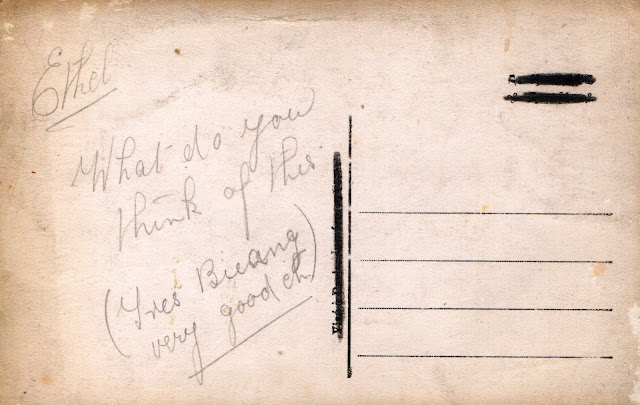 Ethel
What do you
think of this
(Tres Bieang
very good eh)